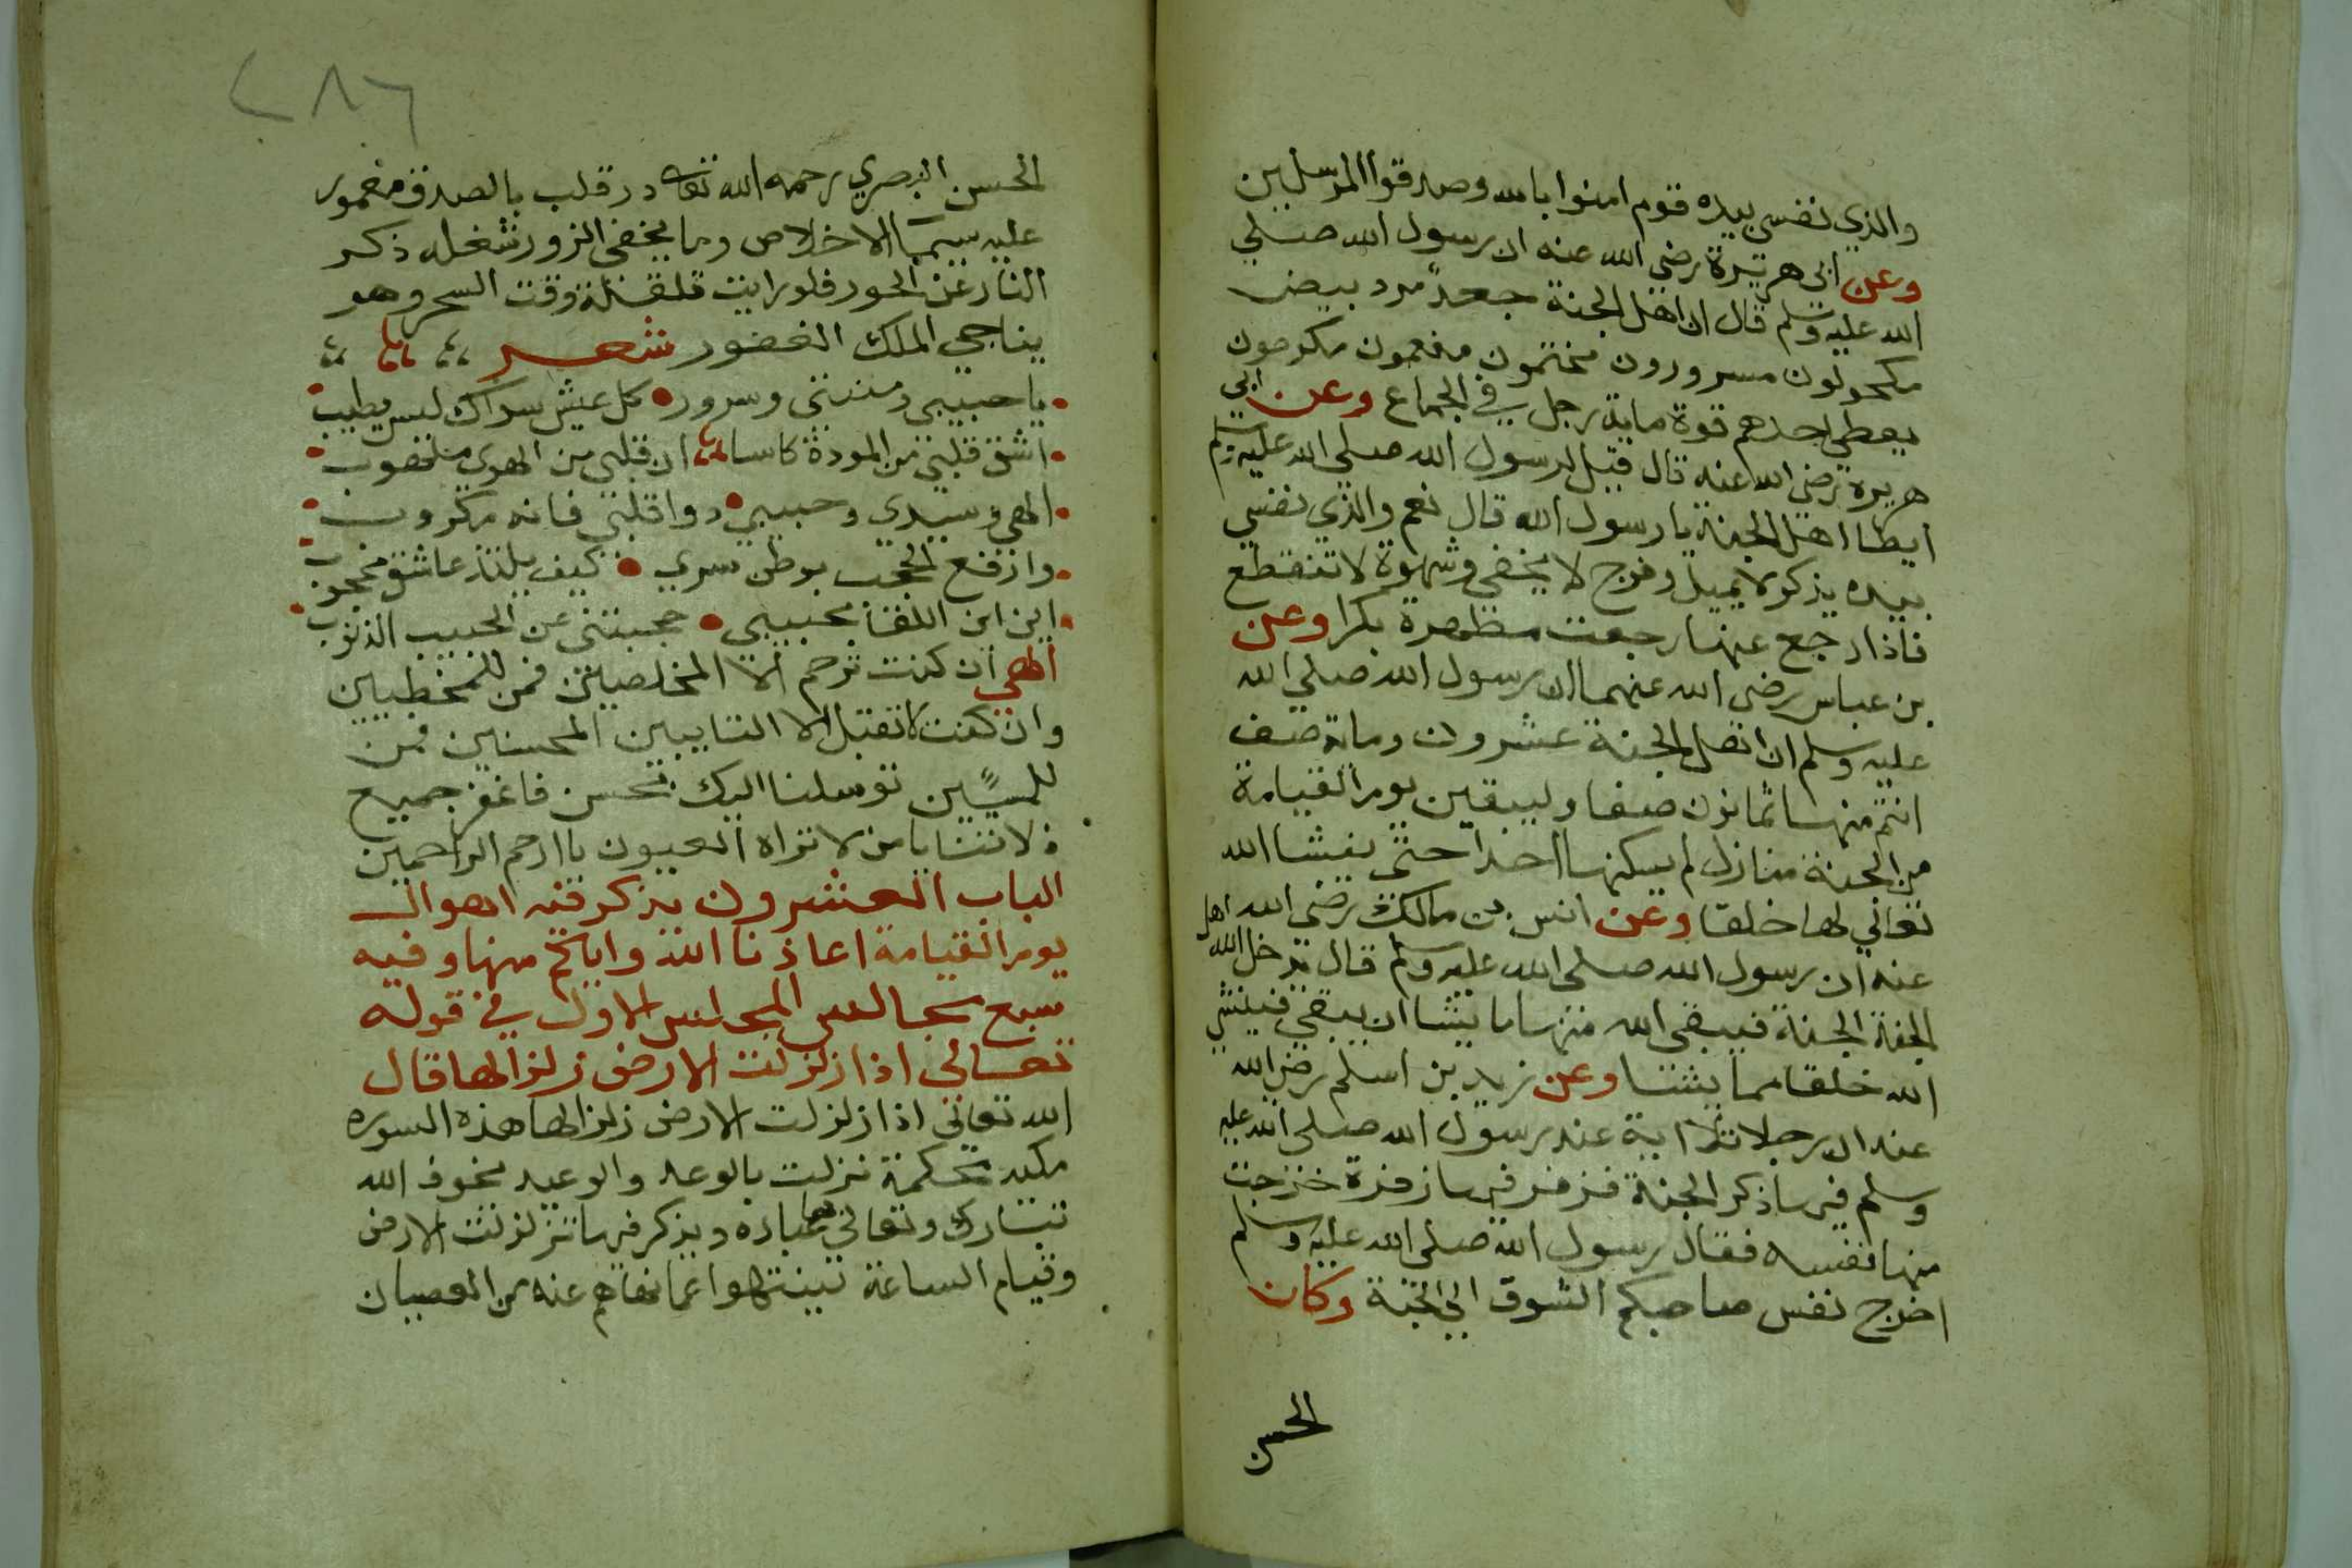 والذي نفسي بيده قوم امنوا بالله وصدقوا المرسلين
وعن ابي هريرة رضي الله عنه ان رسول الله صلي
الله عليه وسلم قال ان اهل الجنة جعد مرد بيض
مكحولون مسرورون مختمون منعمون مكرمون
يعطي احدهم قوة ماية رجل في الجماع وعن ابي
هريرة رضي الله عنه قال قيل لرسول الله صلي الله عليه وسلم
ايطا اهل الجنة يا رسول الله قال نعم والذي نفسي
بيده يذكر لا يميل وفرج لا يخفي وشهوة لا تنقطع
فاذا رجع عنها رجعت مطهرة بكرا وعن
بن عباس رضي الله عنهما ان رسول الله صلي الله
عليه وسلم ان اهل الجنة عشرون وماية صف
انتم منها ثمانون صفا وليبقين يوم القيامة
من الجنة منازل لم يسكنها احدا حتي ينشا الله
تعالي لها خلقا وعن انس بن مالك رضي الله
عنه ان رسول الله صلي الله عليه وسلم قال يدخل الله اهل
الجنة الجنة فيبقي الله منها ما يشا ان يبقي فينشي
الله خلقا مما يشا وعن زيد بن اسلم رضي الله
عنه ان رجلا تلا اية عند رسول الله صلي الله عليه
وسلم فيها ذكر الجنة فزفر فيها زفرة خرجت
منها نفسه فقال رسول الله صلي الله عليه وسلم
اخرج نفس صاحبكم الشوق الي الجنة وكان
الحسن
٢٨٦
الحسن البصري رحمه الله تعالي در قلب بالصدق مغمور
عليه سيما الاخلاص وما يخفي الزور شغله ذكر
النار عن الحور فلو رايت قلقله وقت السحر وهو
يناجي الملك الغفور شعر
يا حبيبي ومنيتي وسرور كل عيش سواك ليس يطيب
اشق قلبي من المودة كاسا ان قلبي من الهوي
الهي وسيدي وحبيبي دوا قلبي فانه مكروب
وارفع الحجب بوطن سري كيف يلتذ عاشق محجوب
اين اين اللقا بحبيبي حجبتني عن الحبيب الذنوب
الهي ان كنت ترحم الا المخلصين فمن للمخطيين
وان كنت لا تقبل الا التايبين المحسنين فمن
للمسيين توسلنا اليك فاغفر جميع
زلاتنا يا من لا تراه العيون يا ارحم الراحمين
الباب العشرون يذكر فيه اهوال
يوم القيامة اعاذنا الله واياكم منها وفيه
سبع مجالس المجلس الاول في قوله
تعالي اذا زلزلت الارض زلزالها قال
الله تعالي اذا زلزلت الارض زلزالها هذه السوره
مكيه محكمة نزلت بالوعد والوعيد يخوف الله
تبارك وتعالي بها عباده ويذكر فيها تزلزلت الارض
وقيام الساعة لينتهوا عما نهاهم عنه من العصيان